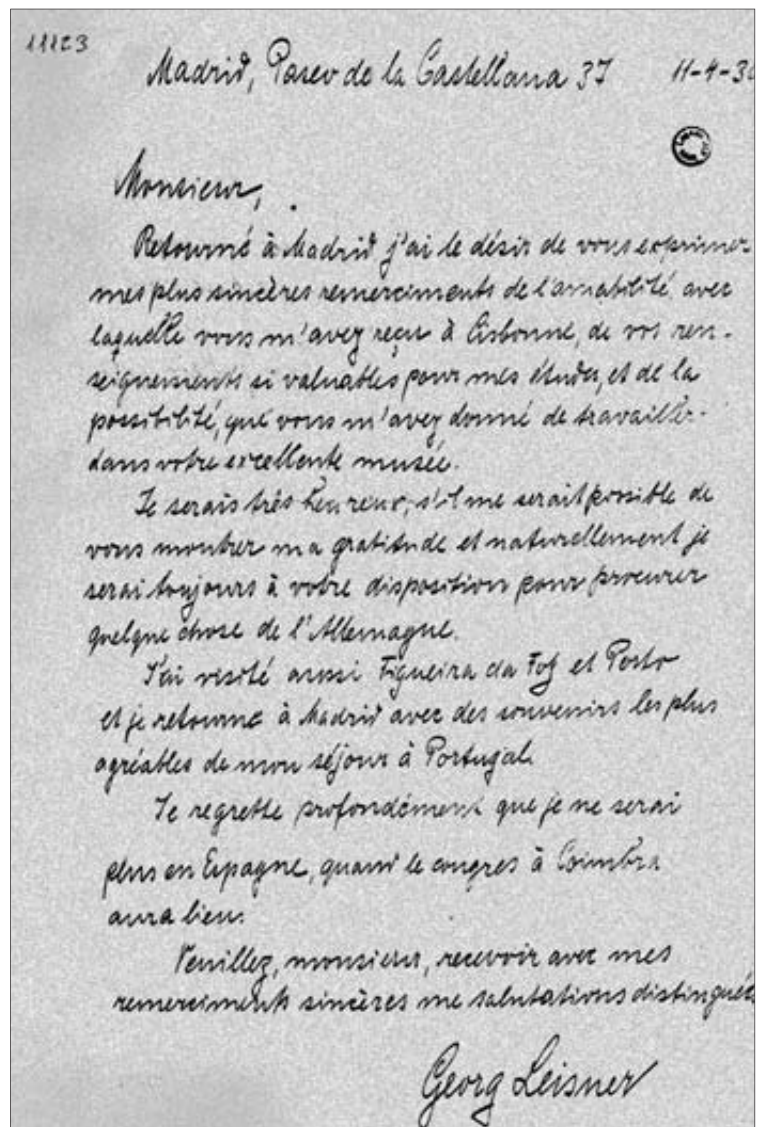 11123
Madrid, Paseo de la Castellana 37 11-4-30
Monsieur,
Retourné à Madrid j'ai le désir de vous exprimer
mes plus sincères remerciments de l'amabilité, avec
laquelle vous m'avez reçu à Lisbonne, de vos ren-
seignements si valuables pour mes études, et de la
possibilité, que vous m'avez donné de travailler
dans votre excellente musée.
Je serais très heureux, s'il me serait possible de
vous montrer ma gratitude et naturellement je
serai toujours à votre disposition pour procurer
quelque chose de l'Allemagne.
J'ai visité aussi Figueira da Foz et Porto
et je retourne à Madrid avec des souvenirs les plus
agréables de mon séjour à Portugal.
Je regrette profondément que je ne serai
plus en Espagne, quand le congres à Coimbra
aura lieu.
Veuillez, monsieur, recevoir avec mes
remerciments sincères me salutations distinguées
Georg Leisner